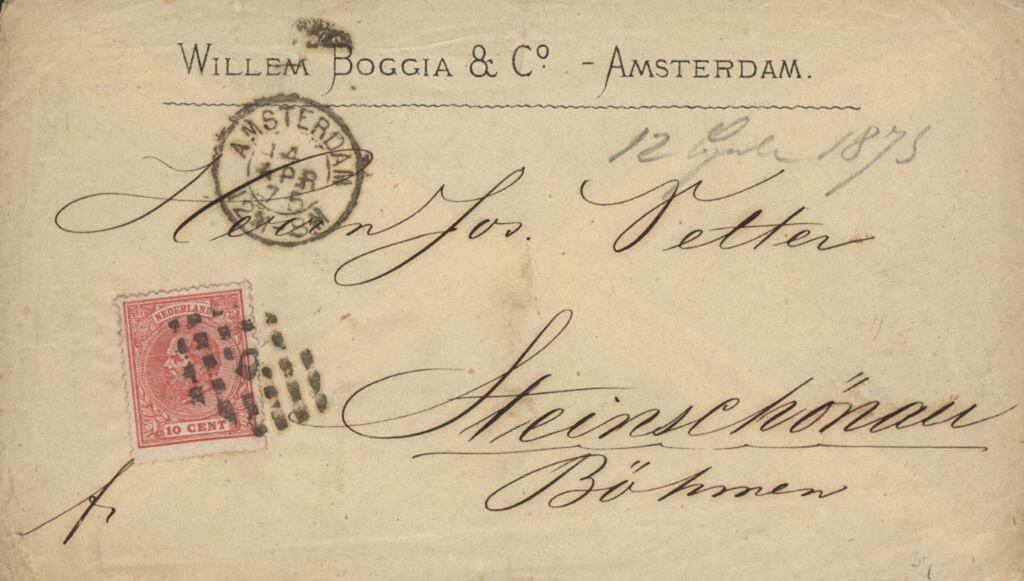 WILLEM BOGGIA & Cº - AMSTERDAM.
AMSTERDAM
14
APR
75
12M-8M
12 1875
Herrn Jos. Vetter
NEDERLAND
10 CENT
Steinschönau
Böhmen
fr